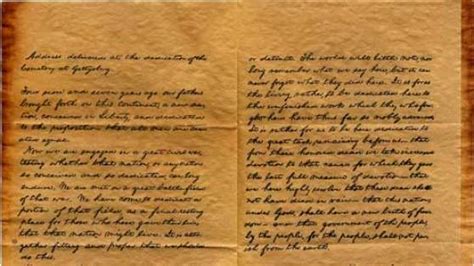 Address delivered at the dedication of the
Cemetery at Gettysburg.
Four score and seven years ago our fathers
brought forth on this continent, a new na-
tion, conceived in Liberty, and dedicated
to the proposition that all men are cre-
ated equal.
Now we are engaged in a great civil war,
testing whether that nation, or any nation
so conceived and so dedicated, can long
endure. We are met on a great battle field
of that war. We have come to dedicate a
portion of that field, as a final resting
place for those who here gave their lives
that that nation might live. It is alto-
gether fitting and proper that we should
do this.
or detract. The world will little note, nor
long remember what we say here, but it can
never forget what they did here. It is for us
the living, rather, to be dedicated here to
the unfinished work which they who fou-
ght here have thus far so nobly advanced.
It is rather for us to be here dedicated to
the great task remaining before us - that
from these honored dead we take increased
devotion to that cause for which they gave
the last full measure of devotion - that
we here highly resolve that these dead shall
not have died in vain - that this nation,
under God, shall have a new birth of free-
dom - and that government of the people,
by the people, for the people, shall not per-
ish from the earth.